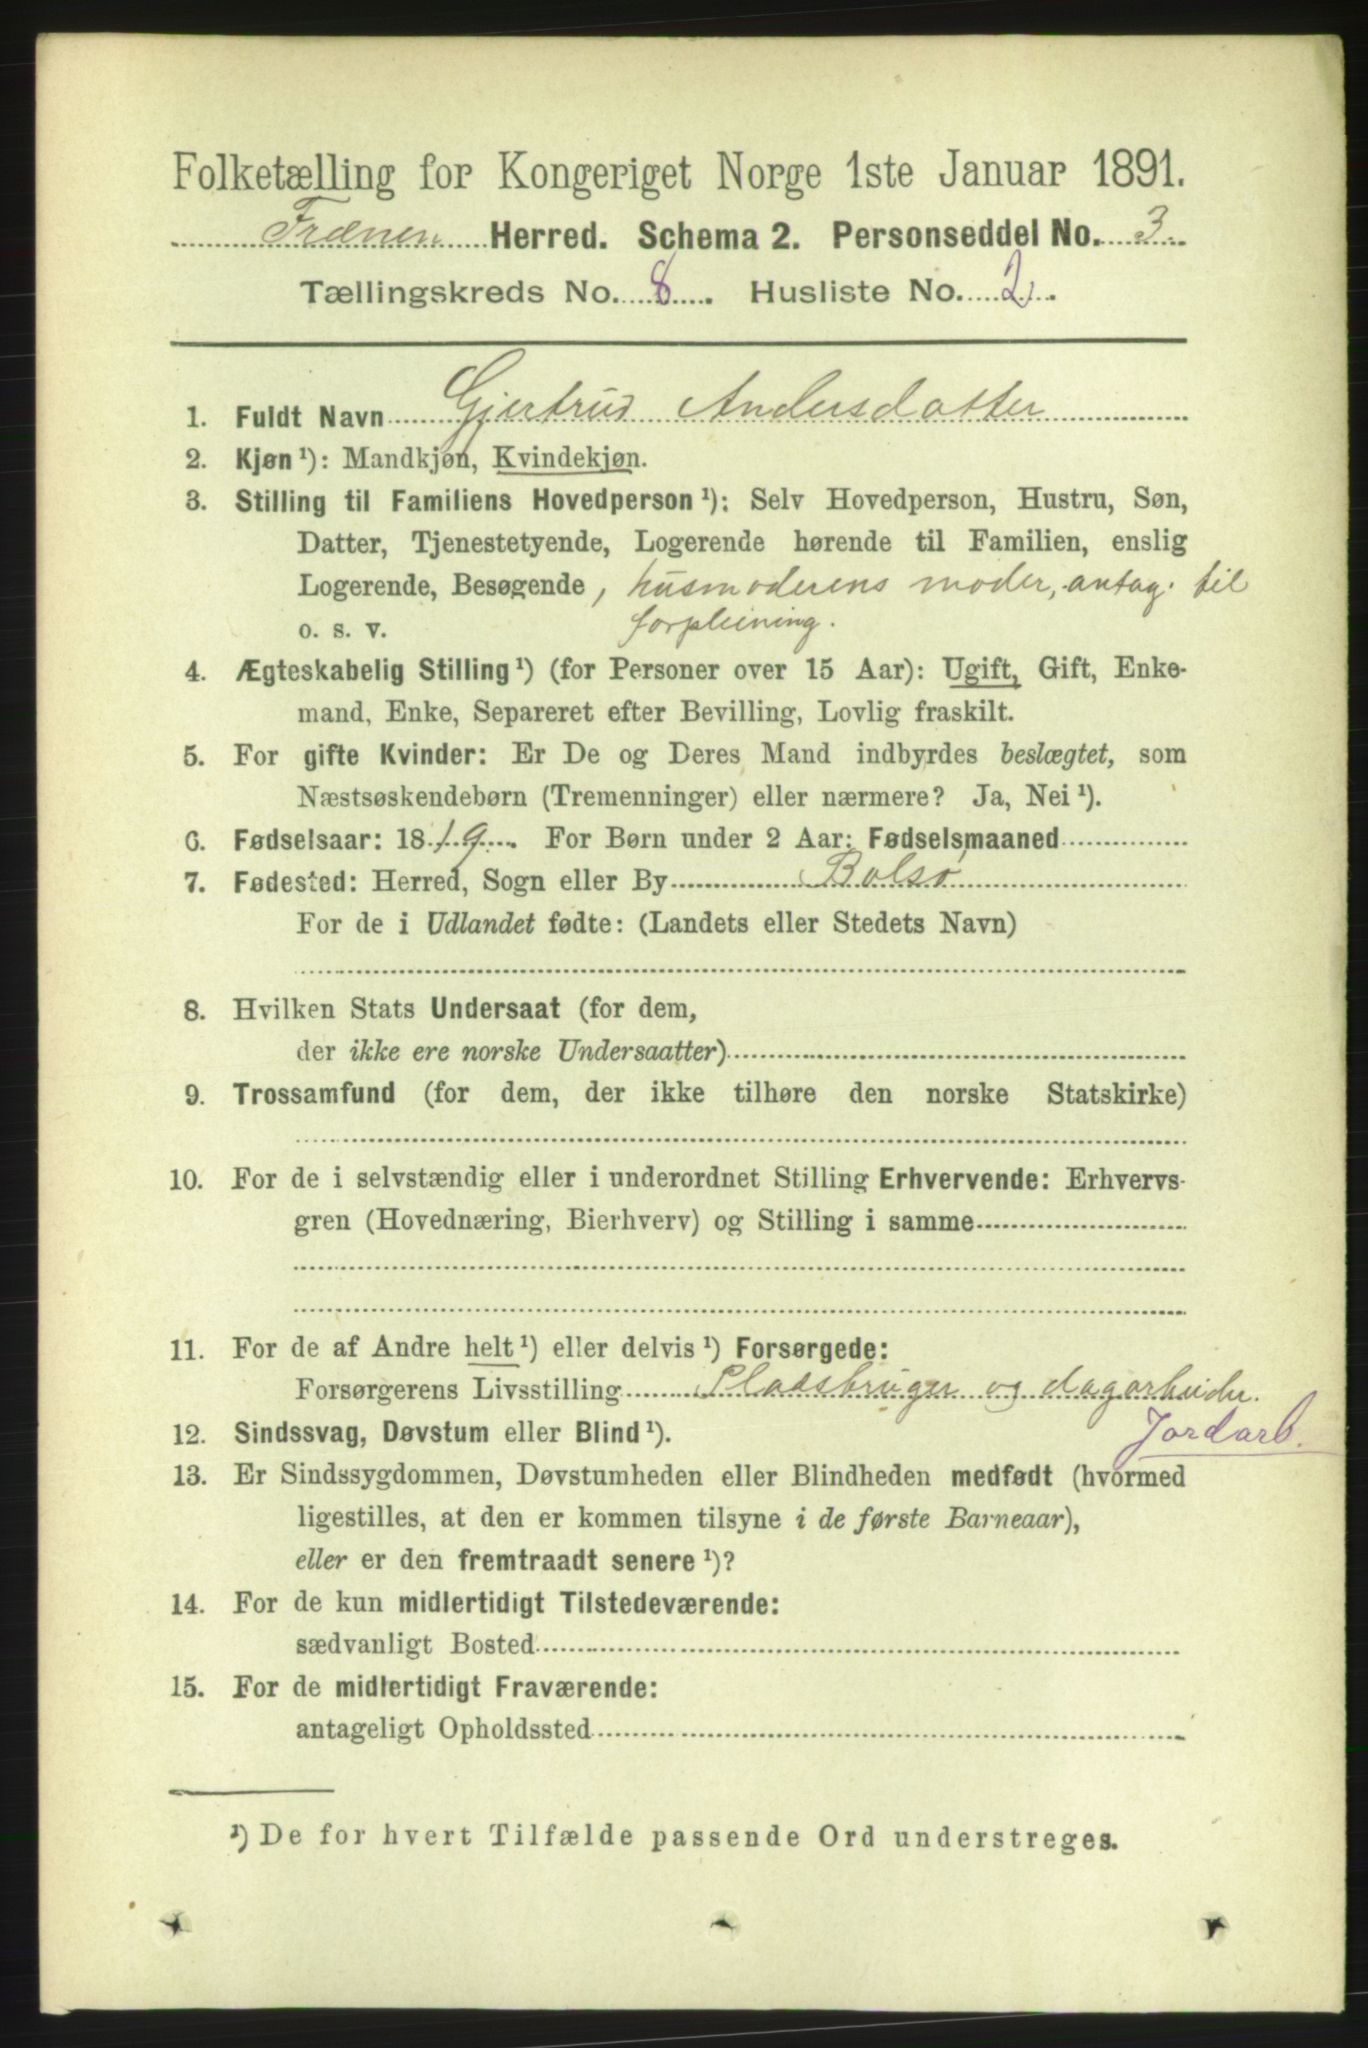 Folketælling for Kongeriget Norge 1ste Januar 1891.
Frænen Herred. Schema 2. Personseddel No. 3.
Tællingskreds No. 8. Husliste No. 2.
1. Fuldt Navn Gjertrud Andersdatter
2. Kjøn ¹): Mandkjøn, Kvindekjøn.
3. Stilling til Familiens Hovedperson ¹): Selv Hovedperson, Hustru, Søn,
Datter, Tjenestetyende, Logerende hørende til Familien, enslig
Logerende, Besøgende, husmoderens moder, antag. til
o. s. v. forpleining.
4. Ægteskabelig Stilling ¹) (for Personer over 15 Aar): Ugift, Gift, Enke-
mand, Enke, Separeret efter Bevilling, Lovlig fraskilt.
5. For gifte Kvinder: Er De og Deres Mand indbyrdes beslægtet, som
Næstsøskendebørn (Tremenninger) eller nærmere? Ja, Nei ¹).
6. Fødselsaar: 1819. For Børn under 2 Aar: Fødselsmaaned
7. Fødested: Herred, Sogn eller By Bolsø
For de i Udlandet fødte: (Landets eller Stedets Navn)
8. Hvilken Stats Undersaat (for dem,
der ikke ere norske Undersaatter)
9. Trossamfund (for dem, der ikke tilhøre den norske Statskirke)
10. For de i selvstændig eller i underordnet Stilling Erhvervende: Erhvervs-
gren (Hovednæring, Bierhverv) og Stilling i samme
11. For de af Andre helt ¹) eller delvis ¹) Forsørgede:
Forsørgerens Livsstilling Pladsbruger og dagarbeider.
Jordarb.
12. Sindssvag, Døvstum eller Blind ¹).
13. Er Sindssygdommen, Døvstumheden eller Blindheden medfødt (hvormed
ligestilles, at den er kommen tilsyne i de første Barneaar),
eller er den fremtraadt senere ¹)?
14. For de kun midlertidigt Tilstedeværende:
sædvanligt Bosted
15. For de midlertidigt Fraværende:
antageligt Opholdssted
¹) De for hvert Tilfælde passende Ord understreges.